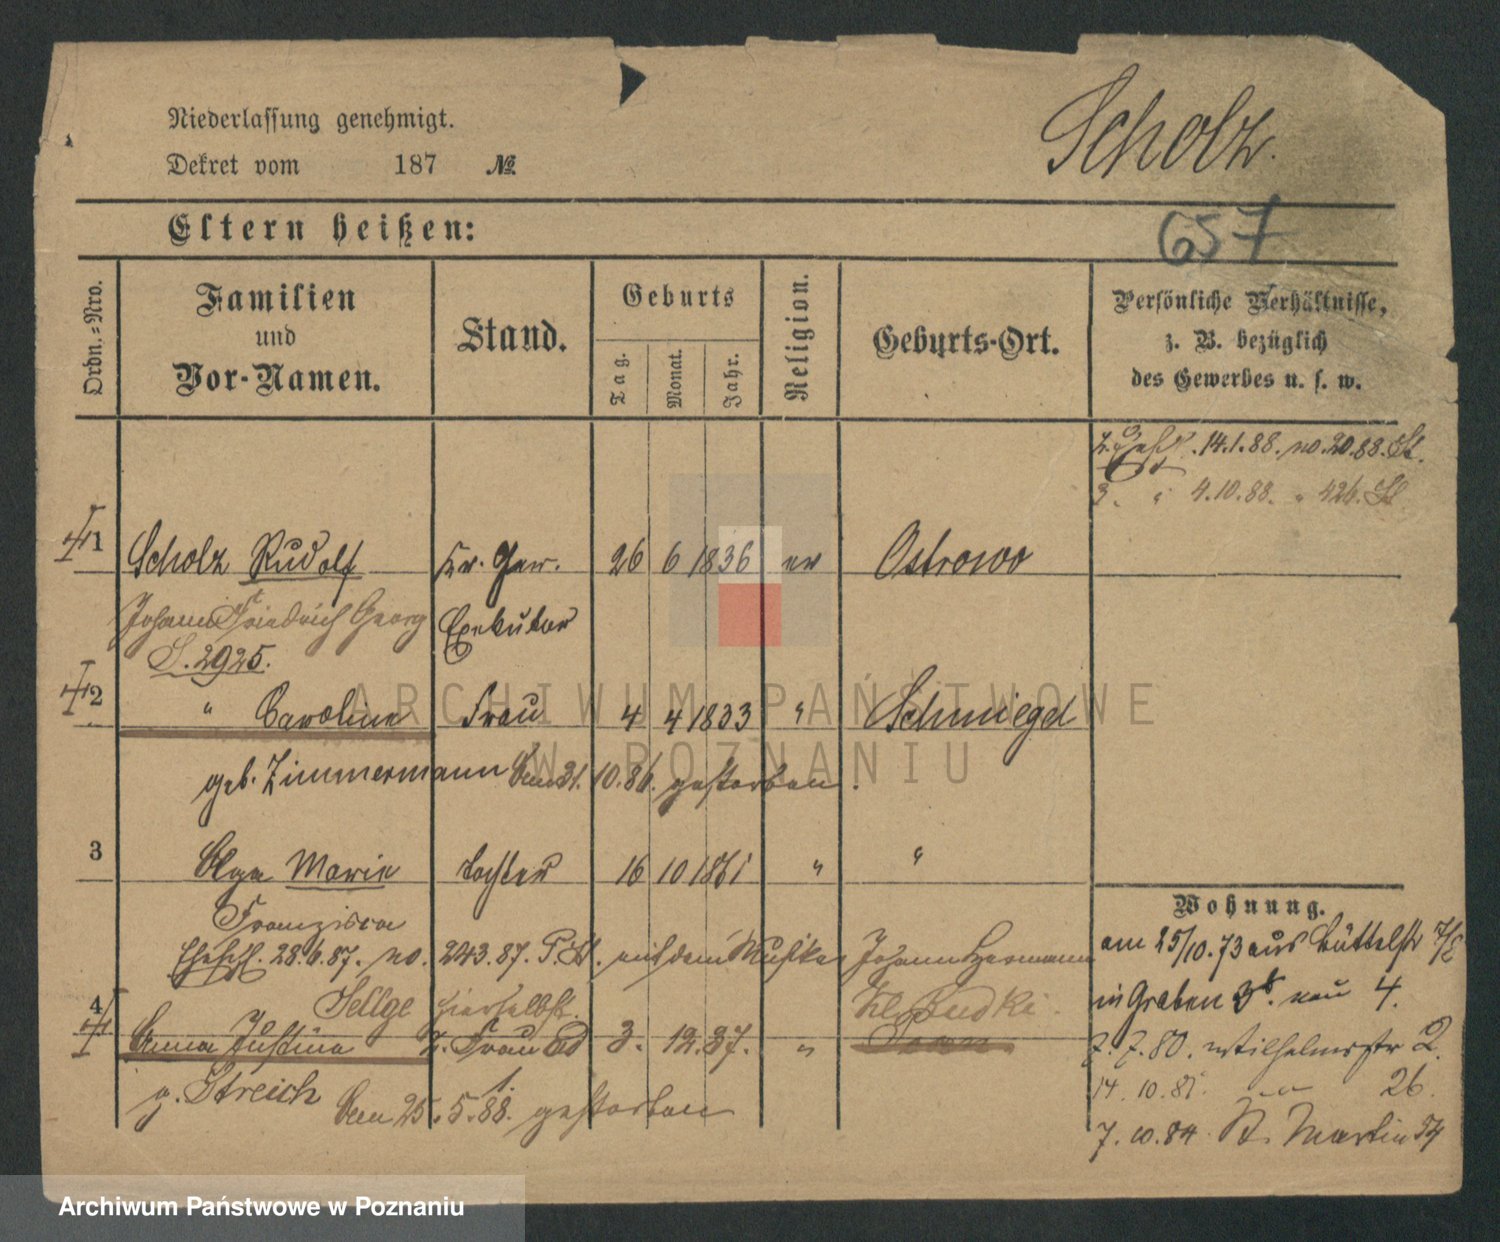 Niederlassung genehmigt.
Dekret vom 187 №
Scholz.
657
Eltern heißen:
Ordn.-Nro.
Familien
und
Vor-Namen.
Stand.
Geburts
Tag.
Monat.
Jahr.
Religion.
Geburts-Ort.
Persönliche Verhältnisse,
z. B. bezüglich
des Gewerbes u. s. w.
14.1.88. no. 20.88. St.
3. " 4.10.88. " 426. St
1 Scholz Rudolf Kr. Ger. 26 6 1836 ev Ostrowo
Johann Friedrich Georg Exekutor
S. 2925.
2 " Caroline Frau 4 4 1833 " Schmiegel
geb. Zimmermann den 21. 10. 86. gestorben.
3 Olga Marie Tochter 16 10 1861 " "
Franziska
Ehesch. 28.6.87. no. 243.87. P. St. mit dem Musiker Johann Hermann
Sellge hierselbst.
4 Anna Justina 2. Frau 3. 12. 37. "
g. Streich den 25. 5. 88. gestorben
Wohnung.
am 25/10.73 aus Büttelstr
in Graben 3b. neu 4.
7. 7. 80. Wilhelmsstr 2.
14. 10. 81. " " 26.
7. 10. 84. St. Martin 54
ARCHIWUM PAŃSTWOWE
W POZNANIU
Archiwum Państwowe w Poznaniu